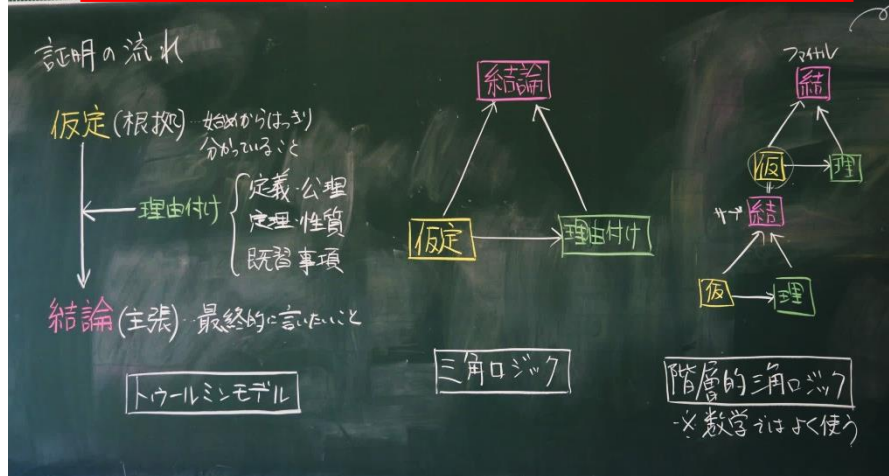 証明の流れ
仮定(根拠)…始めからはっきり
分かっていること
理由付け
定義・公理
定理・性質
既習事項
結論(主張)…最終的に言いたいこと
トゥールミンモデル
結論
仮定
理由付け
三角ロジック
ファイナル
結
仮
理
サブ
結
仮
理
階層的三角ロジック
※数学ではよく使う